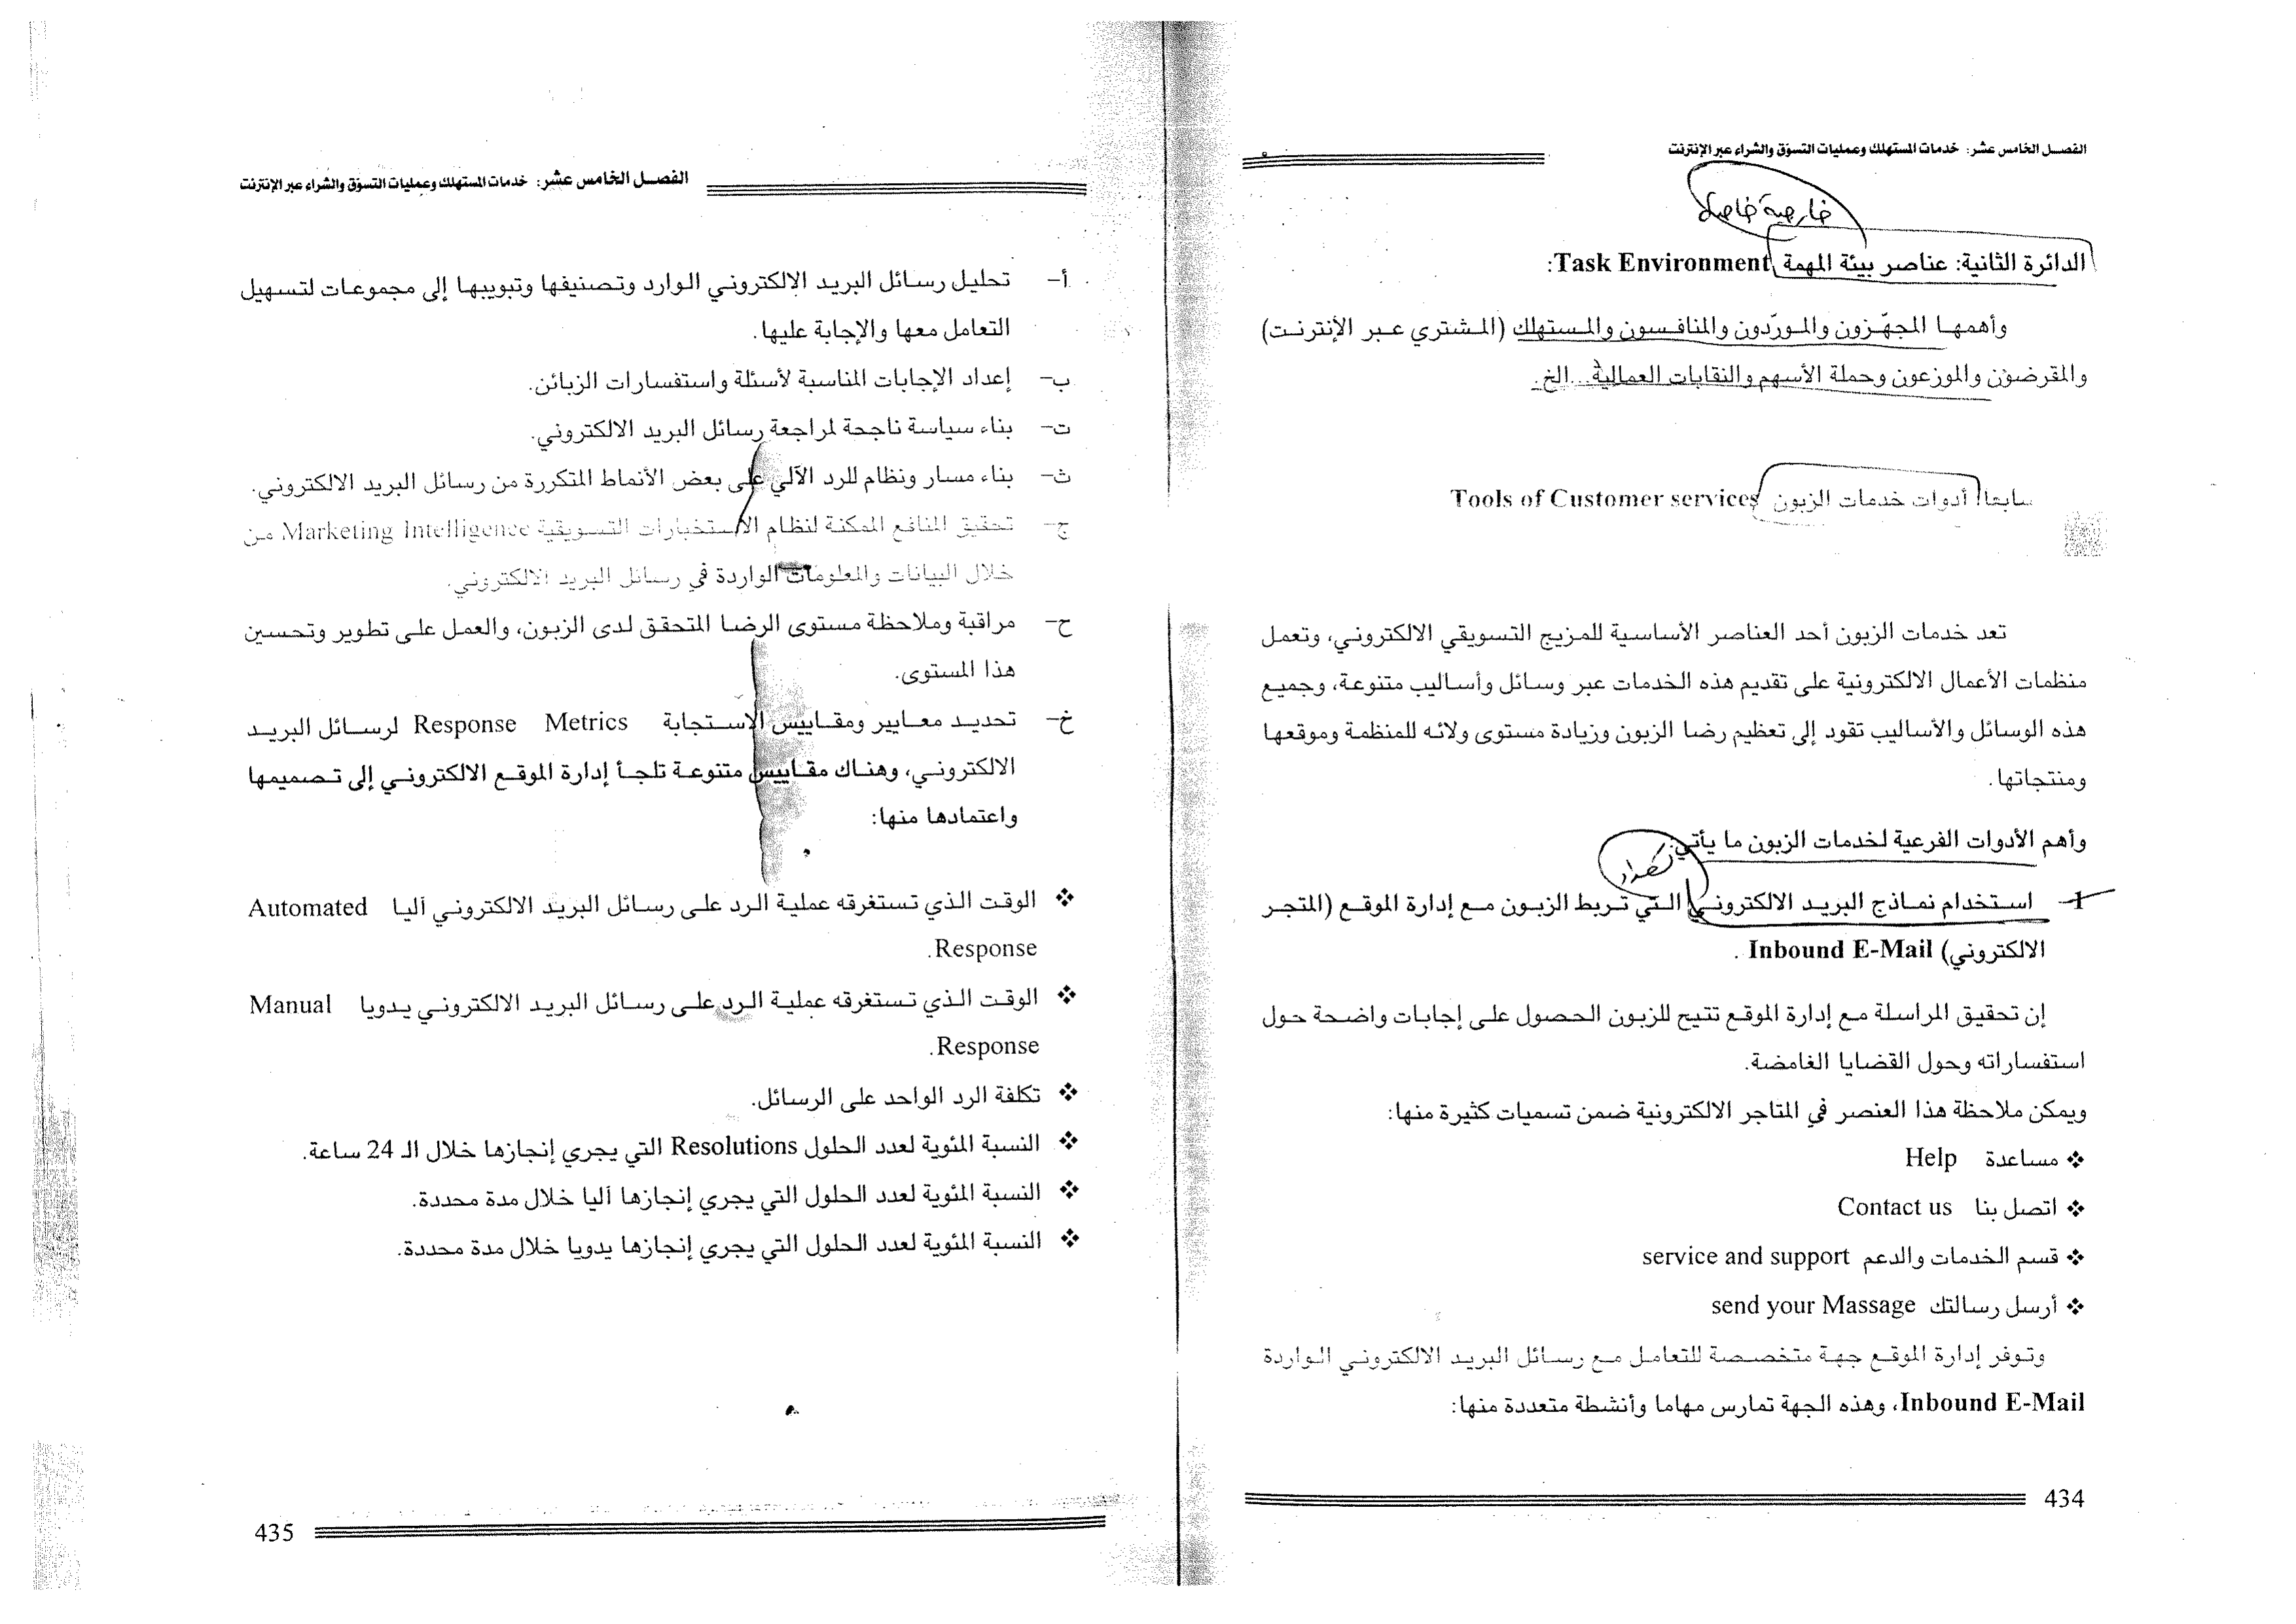 الفصل الخامس عشر: خدمات المستهلك وعمليات التسوق والشراء عبر الإنترنت
خارجية خاصة
الدائرة الثانية: عناصر بيئة المهمة Task Environment:
وأهمها المجهّزون والمورّدون والمنافسون والمستهلك (المشتري عبر الإنترنت)
والمقرضون والموزعون وحملة الأسهم والنقابات العمالية...الخ.
سابعا: أدوات خدمات الزبون Tools of Customer services
تعد خدمات الزبون أحد العناصر الأساسية للمزيج التسويقي الالكتروني، وتعمل
منظمات الأعمال الالكترونية على تقديم هذه الخدمات عبر وسائل وأساليب متنوعة، وجميع
هذه الوسائل والأساليب تقود إلى تعظيم رضا الزبون وزيادة مستوى ولائه للمنظمة وموقعها
ومنتجاتها.
وأهم الأدوات الفرعية لخدمات الزبون ما يأتي:
تعداد
1- استخدام نماذج البريد الالكتروني التي تربط الزبون مع إدارة الموقع (المتجر
الالكتروني) Inbound E-Mail .
إن تحقيق المراسلة مع إدارة الموقع تتيح للزبون الحصول على إجابات واضحة حول
استفساراته وحول القضايا الغامضة.
ويمكن ملاحظة هذا العنصر في المتاجر الالكترونية ضمن تسميات كثيرة منها:
❖ مساعدة Help
❖ اتصل بنا Contact us
❖ قسم الخدمات والدعم service and support
❖ أرسل رسالتك send your Massage
وتوفر إدارة الموقع جهة متخصصة للتعامل مع رسائل البريد الالكتروني الواردة
Inbound E-Mail، وهذه الجهة تمارس مهاما وأنشطة متعددة منها:
434
الفصل الخامس عشر: خدمات المستهلك وعمليات التسوق والشراء عبر الإنترنت
أ- تحليل رسائل البريد الالكتروني الوارد وتصنيفها وتبويبها إلى مجموعات لتسهيل
التعامل معها والإجابة عليها.
ب- إعداد الإجابات المناسبة لأسئلة واستفسارات الزبائن.
ت- بناء سياسة ناجحة لمراجعة رسائل البريد الالكتروني.
ث- بناء مسار ونظام للرد الآلي على بعض الأنماط المتكررة من رسائل البريد الالكتروني.
ج- تحقيق المنافع الممكنة لنظام الاستخبارات التسويقية Marketing Intelligence من
خلال البيانات والمعلومات الواردة في رسائل البريد الالكتروني.
ح- مراقبة وملاحظة مستوى الرضا المتحقق لدى الزبون، والعمل على تطوير وتحسين
هذا المستوى.
خ- تحديد معايير ومقاييس الاستجابة Response Metrics لرسائل البريد
الالكتروني، وهناك مقاييس متنوعة تلجأ إدارة الموقع الالكتروني إلى تصميمها
واعتمادها منها:
❖ الوقت الذي تستغرقه عملية الرد على رسائل البريد الالكتروني آليا Automated
Response.
❖ الوقت الذي تستغرقه عملية الرد على رسائل البريد الالكتروني يدويا Manual
Response.
❖ تكلفة الرد الواحد على الرسائل.
❖ النسبة المئوية لعدد الحلول Resolutions التي يجري إنجازها خلال الـ 24 ساعة.
❖ النسبة المئوية لعدد الحلول التي يجري إنجازها آليا خلال مدة محددة.
❖ النسبة المئوية لعدد الحلول التي يجري إنجازها يدويا خلال مدة محددة.
435